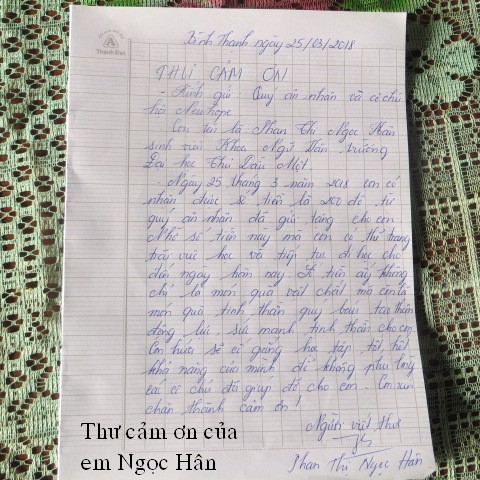 Thành Đạt
Bình Thạnh ngày 25/03/2018
THƯ CẢM ƠN
- Kính gửi: Quý ân nhân và cô chú
hội Newhope
Con tên là Phan Thị Ngọc Hân
sinh viên Khoa Ngữ Văn, trường
Đại học Thủ Dầu Một.
Ngày 25 tháng 3 năm 2018 con có
nhận được số tiền là 200 đô từ
quý ân nhân đã gửi tặng cho con
Nhờ số tiền này mà con có thể trang
trải việc học và tiếp tục đi học cho
đến ngày hôm nay. Số tiền ấy không
chỉ là món quà vật chất mà còn là
món quà tinh thần quý báu tạo thêm
động lực, sức mạnh tinh thần cho em.
Con hứa sẽ cố gắng học tập tốt, hết
khả năng của mình để không phụ lòng
các cô chú đã giúp đỡ cho em. Con xin
chân thành cảm ơn!
Người viết thư
Phan Thị Ngọc Hân
Thư cảm ơn của
em Ngọc Hân